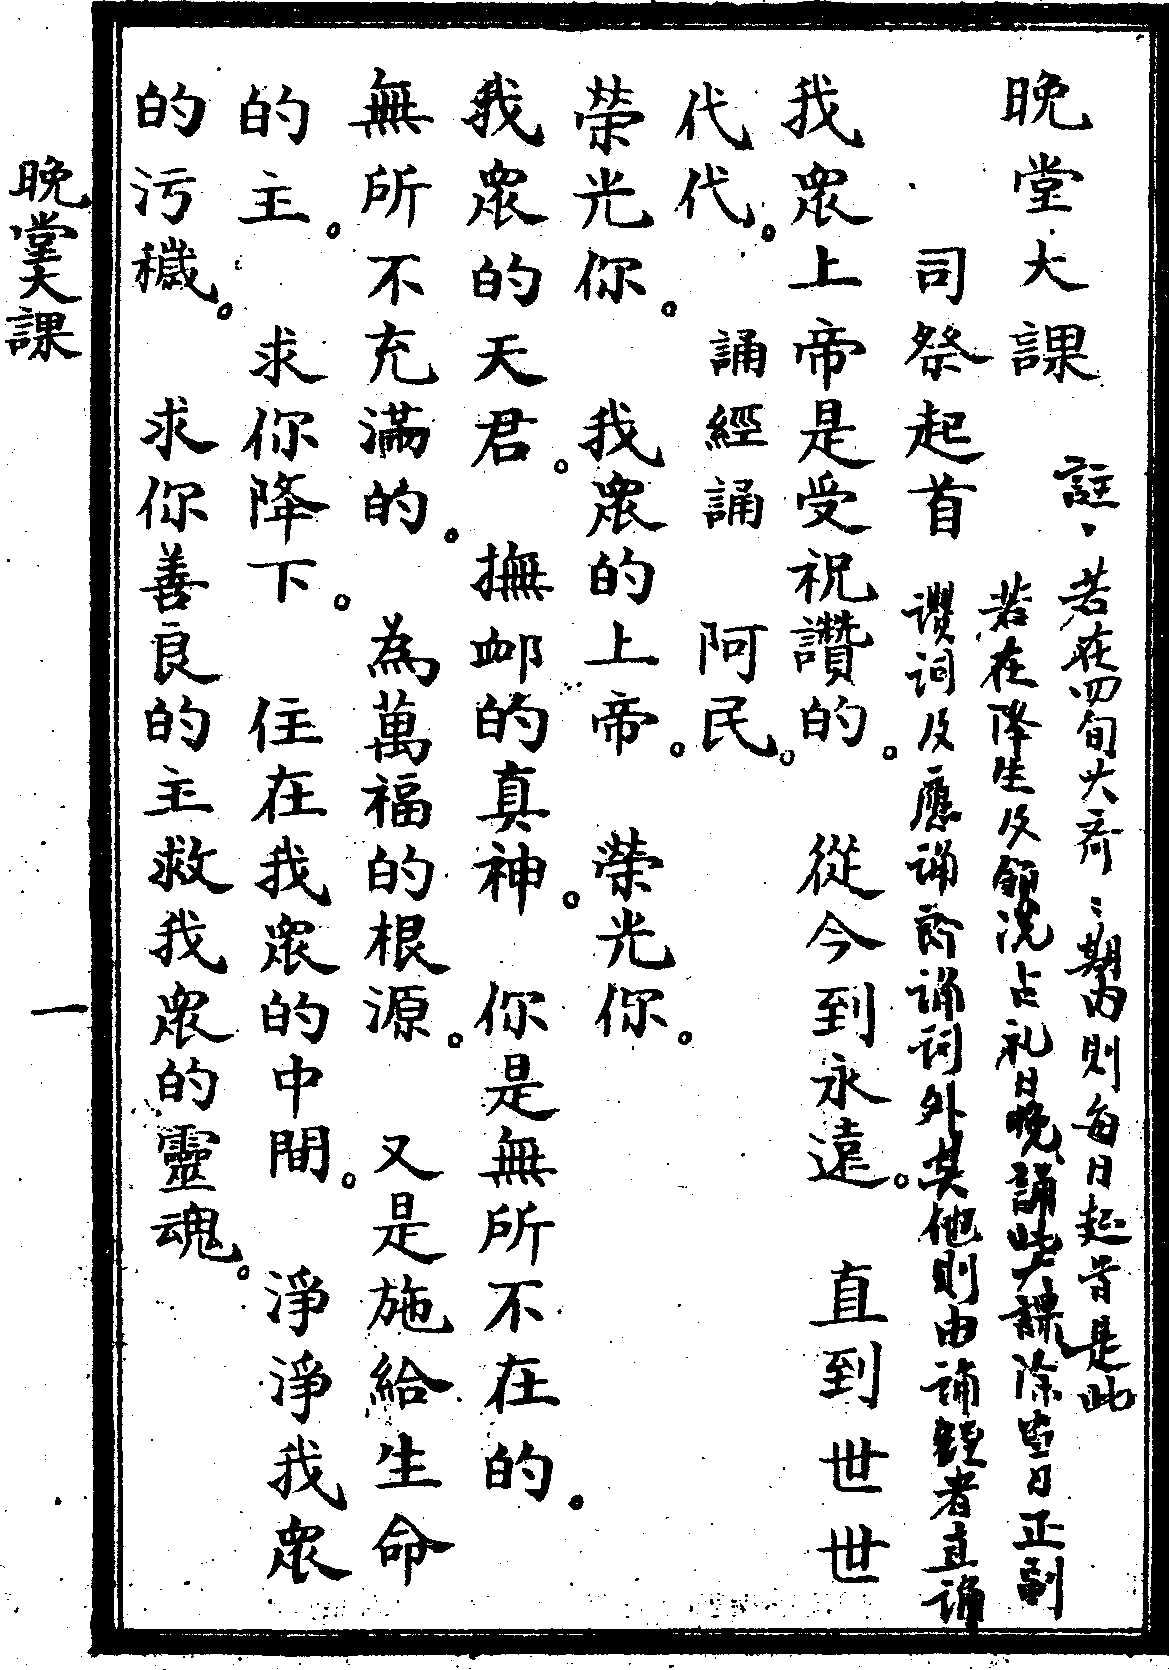 晚堂大課
註、若在四旬大齋ミ期内則每日起首是此
若在降生及領洗占礼日晚誦此大課除當日正副
讚词及應诵所诵词外其他則由诵經者直诵
司祭起首
我眾上帝是受祝讚的。從今到永遠。直到世世
代代。誦經誦 阿民。
榮光你。我眾的上帝。榮光你。
我眾的天君。撫卹的真神。你是無所不在的。
無所不充滿的。為萬福的根源。又是施給生命
的主。求你降下。住在我眾的中間。淨淨我眾
的污穢。求你善良的主救我眾的靈魂。
晚堂大課
一